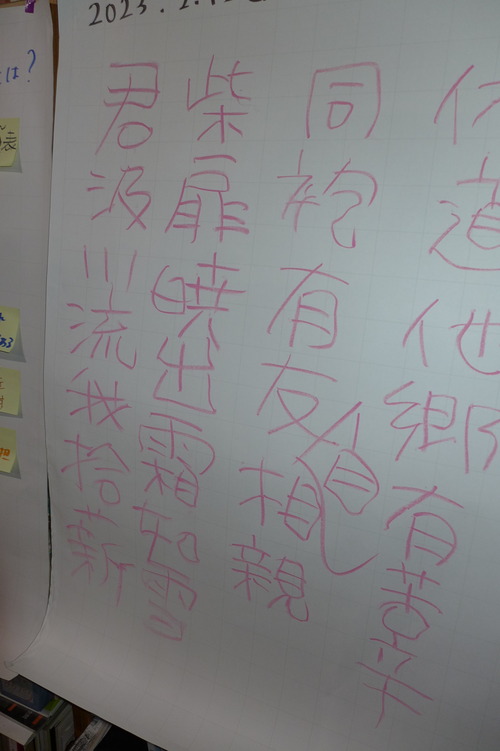 2023.
は?
休道他郷有苦辛
同袍有友自相親
柴扉暁出霜如雪
君汲川流我拾薪
表